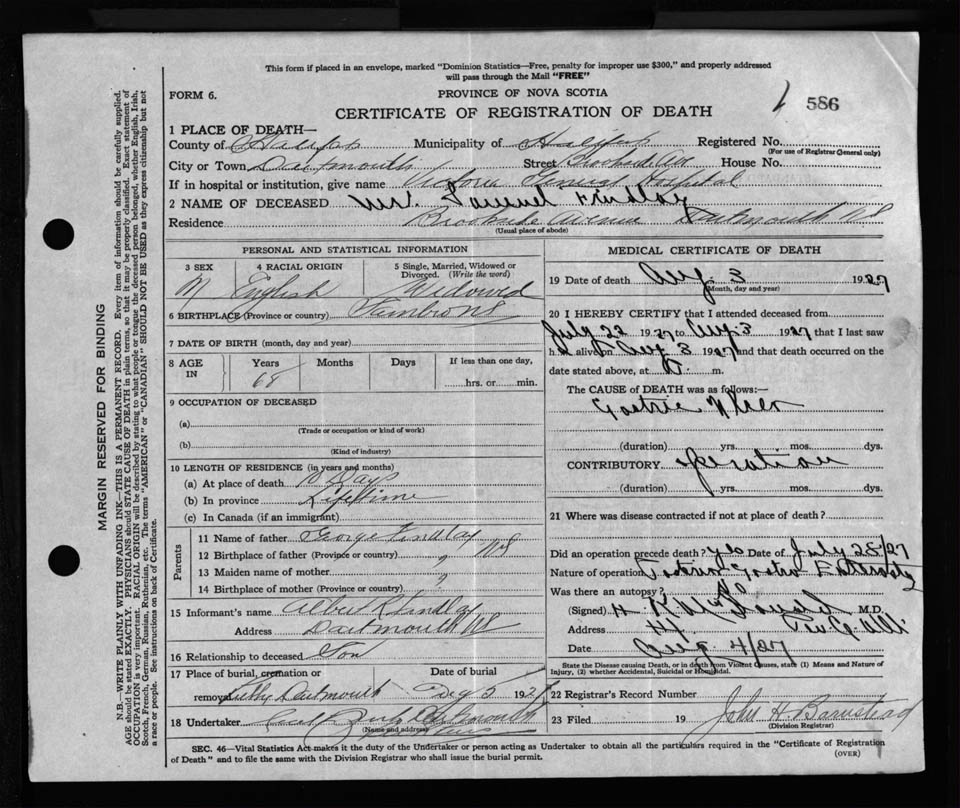 This form if placed in an envelope, marked "Dominion Statistics—Free, penalty for improper use $300," and properly addressed
will pass through the Mail "FREE"
FORM 6.
PROVINCE OF NOVA SCOTIA
586
CERTIFICATE OF REGISTRATION OF DEATH
1 PLACE OF DEATH—
County of Halifax Municipality of Halifax Registered No.
(For use of Registrar General only)
City or Town Dartmouth Street Brookside Ave House No.
If in hospital or institution, give name Victoria General Hospital
2 NAME OF DECEASED Mr. Samuel Findlay
Residence Brookside Avenue Dartmouth NS
(Usual place of abode)
PERSONAL AND STATISTICAL INFORMATION
3 SEX 4 RACIAL ORIGIN 5 Single, Married, Widowed or
Divorced. (Write the word)
M English Widowed
6 BIRTHPLACE (Province or country) NS
7 DATE OF BIRTH (month, day and year)
8 AGE IN Years Months Days If less than one day,
68 hrs. or min.
9 OCCUPATION OF DECEASED
(a)
(Trade or occupation or kind of work)
(b)
(Kind of industry)
10 LENGTH OF RESIDENCE (in years and months)
(a) At place of death 10 Days
(b) In province Lifetime
(c) In Canada (if an immigrant)
Parents
11 Name of father George Findlay
12 Birthplace of father (Province or country) NS
13 Maiden name of mother ?
14 Birthplace of mother (Province or country) ?
15 Informant's name Albert Findlay
Address Dartmouth NS
16 Relationship to deceased Son
17 Place of burial, cremation or Date of burial
removal Dartmouth 5 192
18 Undertaker Dartmouth
(Name and address)
MEDICAL CERTIFICATE OF DEATH
19 Date of death Aug 3 1927
(Month, day and year)
20 I HEREBY CERTIFY that I attended deceased from
July 22 1927 to Aug 3 1927 that I last saw
h alive on Aug 3 1927 and that death occurred on
date stated above, at m.
The CAUSE of DEATH was as follows:—
Gastric Ulcer
(duration) yrs. mos. dys.
CONTRIBUTORY Operation
(duration) yrs. mos. dys.
21 Where was disease contracted if not at place of death?
Did an operation precede death? yes Date of July 28/27
Nature of operation Gastro Enterostomy
Was there an autopsy?
(Signed) M.D.
Address
Date Aug 4/27
State the Disease causing Death, or in death from Violent Causes, state (1) Means and Nature of
Injury, (2) whether Accidental, Suicidal or Homicidal.
22 Registrar's Record Number
23 Filed 19 John H. Barnstead
(Division Registrar)
SEC. 46—Vital Statistics Act makes it the duty of the Undertaker or person acting as Undertaker to obtain all the particulars required in the "Certificate of Registration
of Death" and to file the same with the Division Registrar who shall issue the burial permit. (OVER)
MARGIN RESERVED FOR BINDING
N.B.—WRITE PLAINLY WITH UNFADING INK—THIS IS A PERMANENT RECORD. Every item of information should be carefully supplied.
AGE should be stated EXACTLY. PHYSICIANS should STATE CAUSE OF DEATH in plain terms, so that it may be properly classified. Exact statement of
OCCUPATION is very important. RACIAL ORIGIN will be described by stating to what people or tongue the deceased person belonged, whether English, Irish,
Scotch, French, German, Russian, Ruthenian, etc. The terms "AMERICAN" or "CANADIAN" SHOULD NOT BE USED as they express citizenship but not
a race or people. See instructions on back of Certificate.